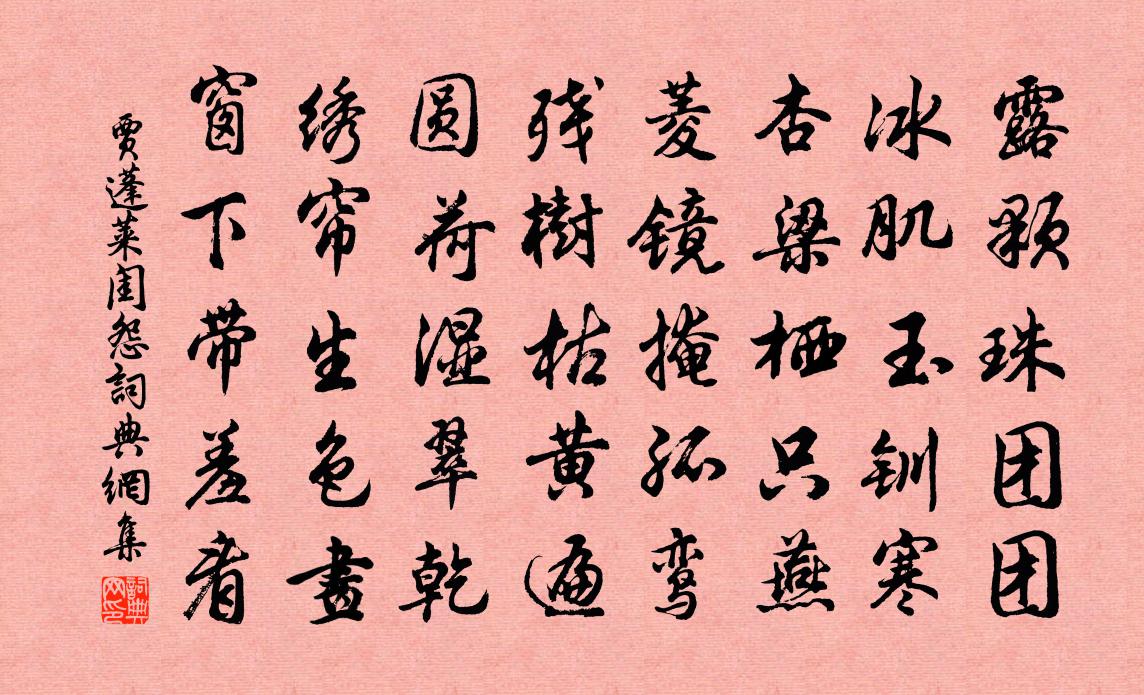 露颗珠团团
冰肌玉钏寒
杏梁栖只燕
菱镜掩孤鸾
残樹枯黄遍
圆荷湿翠乾
绣帘生色畫
窗下带羞看
賈蓬莱闺怨詞典網集
詞典网印